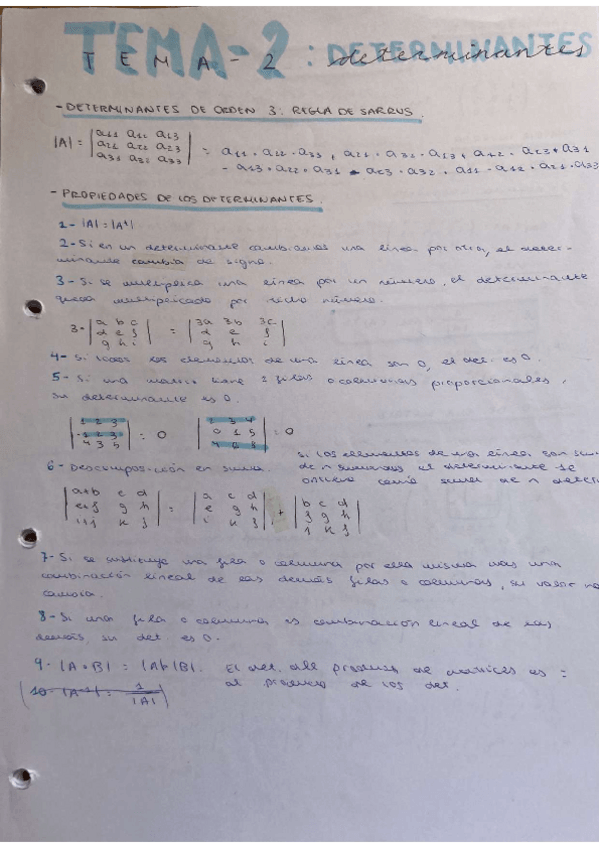 TEMA-2: DETERMINANTES
TEMA-2 determinantes
- DETERMINANTES DE ORDEN 3: REGLA DE SARRUS.
|A| = |a11 a12 a13 / a21 a22 a23 / a31 a32 a33| = a11 · a22 · a33 + a21 · a32 · a13 + a12 · a23 · a31
- a13 · a22 · a31 - a23 · a32 · a11 - a12 · a21 · a33
- PROPIEDADES DE LOS DETERMINANTES.
1- |A| = |Aᵗ|
2- Si en un determinante cambiamos una línea por otra, el deter-
minante cambia de signo.
3- Si se multiplica una línea por un número, el determinante
queda multiplicado por dicho número.
3·|a b c / d e f / g h i| = |3a 3b 3c / d e f / g h i|
4- Si todos los elementos de una línea son 0, el det. es 0.
5- Si una matriz tiene 2 filas o columnas proporcionales,
su determinante es 0.
|1 2 3 / 1 2 3 / 4 3 5| = 0 |2 3 4 / 0 1 5 / 4 6 8| = 0
6- Descomposición en suma.
si los elementos de una línea son
de n sumandos el determinante se
obtiene como suma de n deter
|a+b c d / e+f g h / i+j k f| = |a c d / e g h / i k f| + |b c d / f g h / j k f|
7- Si se sustituye una fila o columna por ella misma más una
combinación lineal de las demás filas o columnas, su valor no
cambia.
8- Si una fila o columna es combinación lineal de las
demás, su det. es 0.
9- |A·B| = |A|·|B|. El det. del producto de matrices es =
al producto de los det.
10- |A⁻¹| = 1/|A|